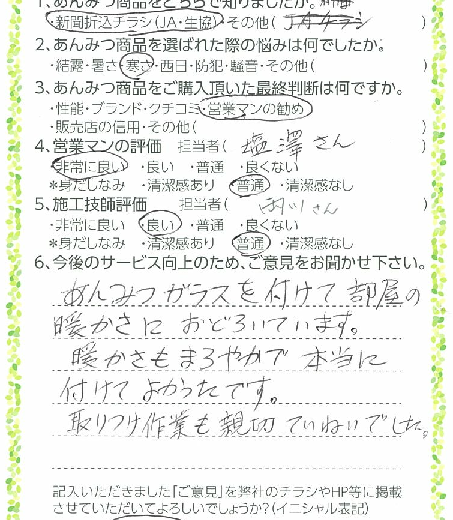 1.あんみつ商品をどちらで知りましたか。
・新聞折込チラシ(JA・生協)・その他(JAチラシ
2.あんみつ商品を選ばれた際の悩みは何でしたか。
・結露・暑さ・寒さ・西日・防犯・騒音・その他( )
3.あんみつ商品をご購入頂いた最終判断は何ですか。
・性能・ブランド・クチコミ・営業マンの勧め
・販売店の信用・その他( )
4.営業マンの評価 担当者(塩澤さん )
・非常に良い ・良い ・普通 ・良くない
*身だしなみ ・清潔感あり ・普通 ・清潔感なし
5.施工技師評価 担当者( 川さん )
・非常に良い ・良い ・普通 ・良くない
*身だしなみ ・清潔感あり ・普通 ・清潔感なし
6.今後のサービス向上のため、ご意見をお聞かせ下さい。
あんみつガラスを付けて部屋の
暖かさにおどろいています。
暖かさもまろやかで本当に
付けてよかったです。
取りつけ作業も親切ていねいでした。
記入いただきました「ご意見」を弊社のチラシやHP等に掲載
させていただいてよろしいでしょうか?(イニシャル表記)